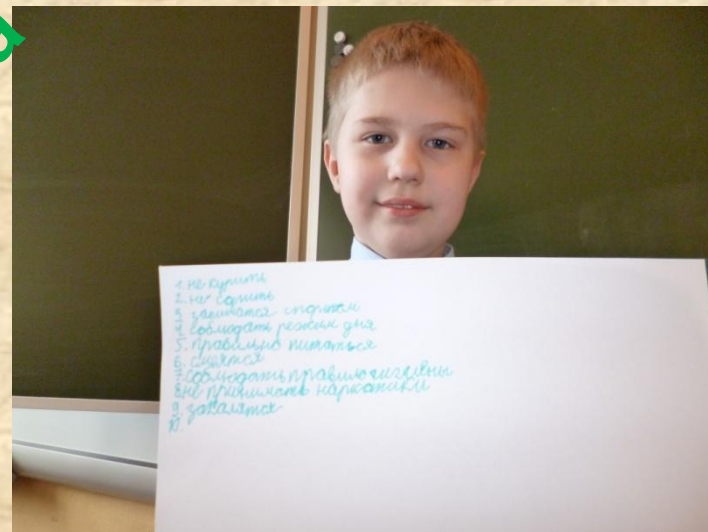 1. не курить
2. не сорить
3. заниматся спортом
4. соблюдать режим дня
5. правильно питаться
6. смеятся
7. соблюдать правило гигиены
8. не принимать наркотики
9. закалятся
10.